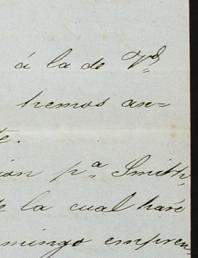 á la de Vd
hemos an=
te.
ion pª Smith,
e la cual haré
omingo empren